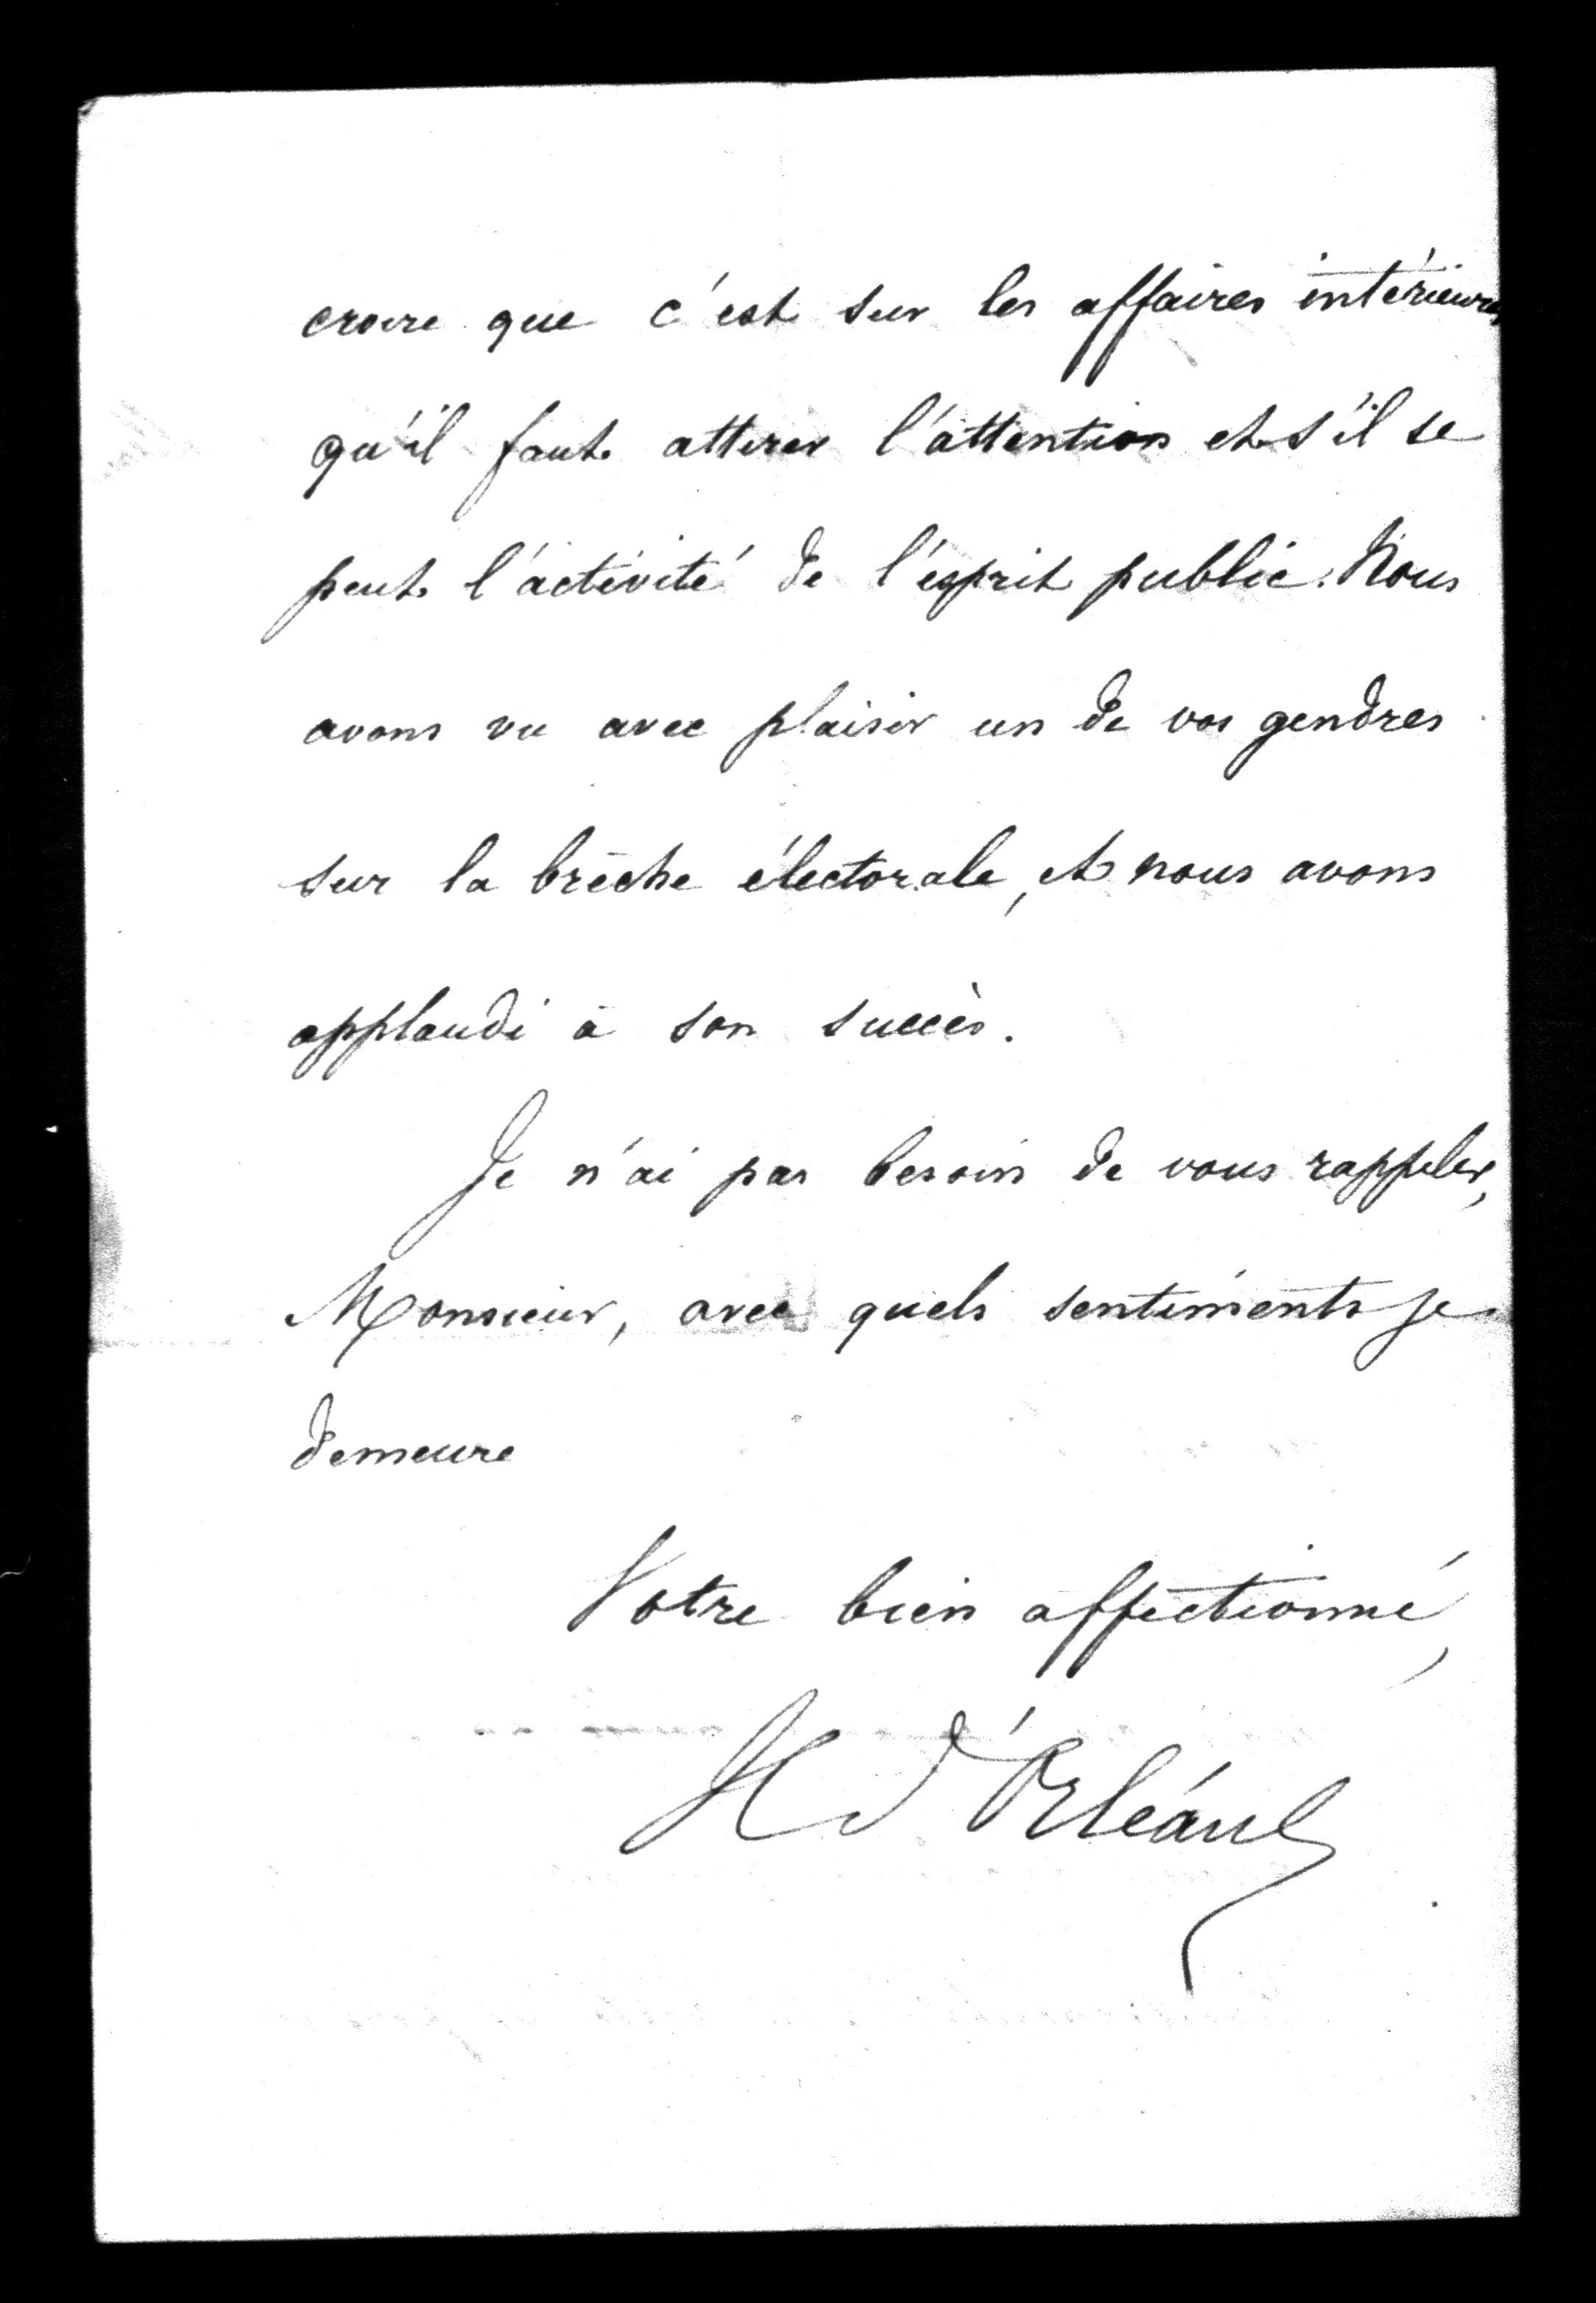 croire que c'est sur les affaires intérieures
qu'il faut attirer l'attention et s'il se
peut l'activité de l'esprit public. Nous
avons vu avec plaisir un de vos gendres
sur la brèche électorale, et nous avons
applaudi à son succès.
Je n'ai pas besoin de vous rappeler,
Monsieur, avec quels sentiments je
demeure
Votre bien affectionné,
H d'Orléans